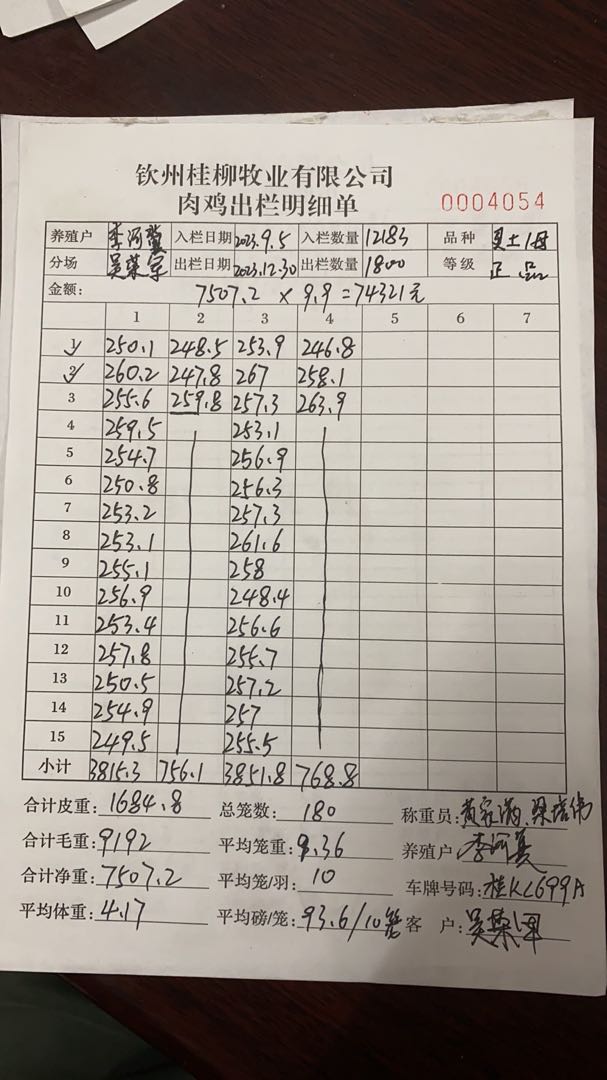 钦州桂柳牧业有限公司
肉鸡出栏明细单
0004054
养殖户 李河 入栏日期 2023.9.5 入栏数量 12183 品种
分场 吴荣 出栏日期 2023.12.30 出栏数量 1800 等级 正品
金额: 7507.2 × 9.9 = 74321元
1 2 3 4 5 6 7
1 250.1 248.5 253.9 246.8
2 260.2 247.8 267 258.1
3 255.6 259.8 257.3 263.9
4 259.5 253.1
5 254.7 256.9
6 250.8 256.3
7 253.2 257.3
8 253.1 261.6
9 255.1 258
10 256.9 248.4
11 253.4 256.6
12 257.8 255.7
13 250.5 257.2
14 254.9 257
15 249.5 255.5
小计 3815.3 756.1 3851.8 768.8
合计皮重: 1684.8 总笼数: 180 称重员: 黄 梁培伟
合计毛重: 9192 平均笼重: 9.36 养殖户 李河
合计净重: 7507.2 平均笼/羽: 10 车牌号码: 桂KL699A
平均体重: 4.17 平均磅/笼: 93.6/10笼 客 户: 吴荣